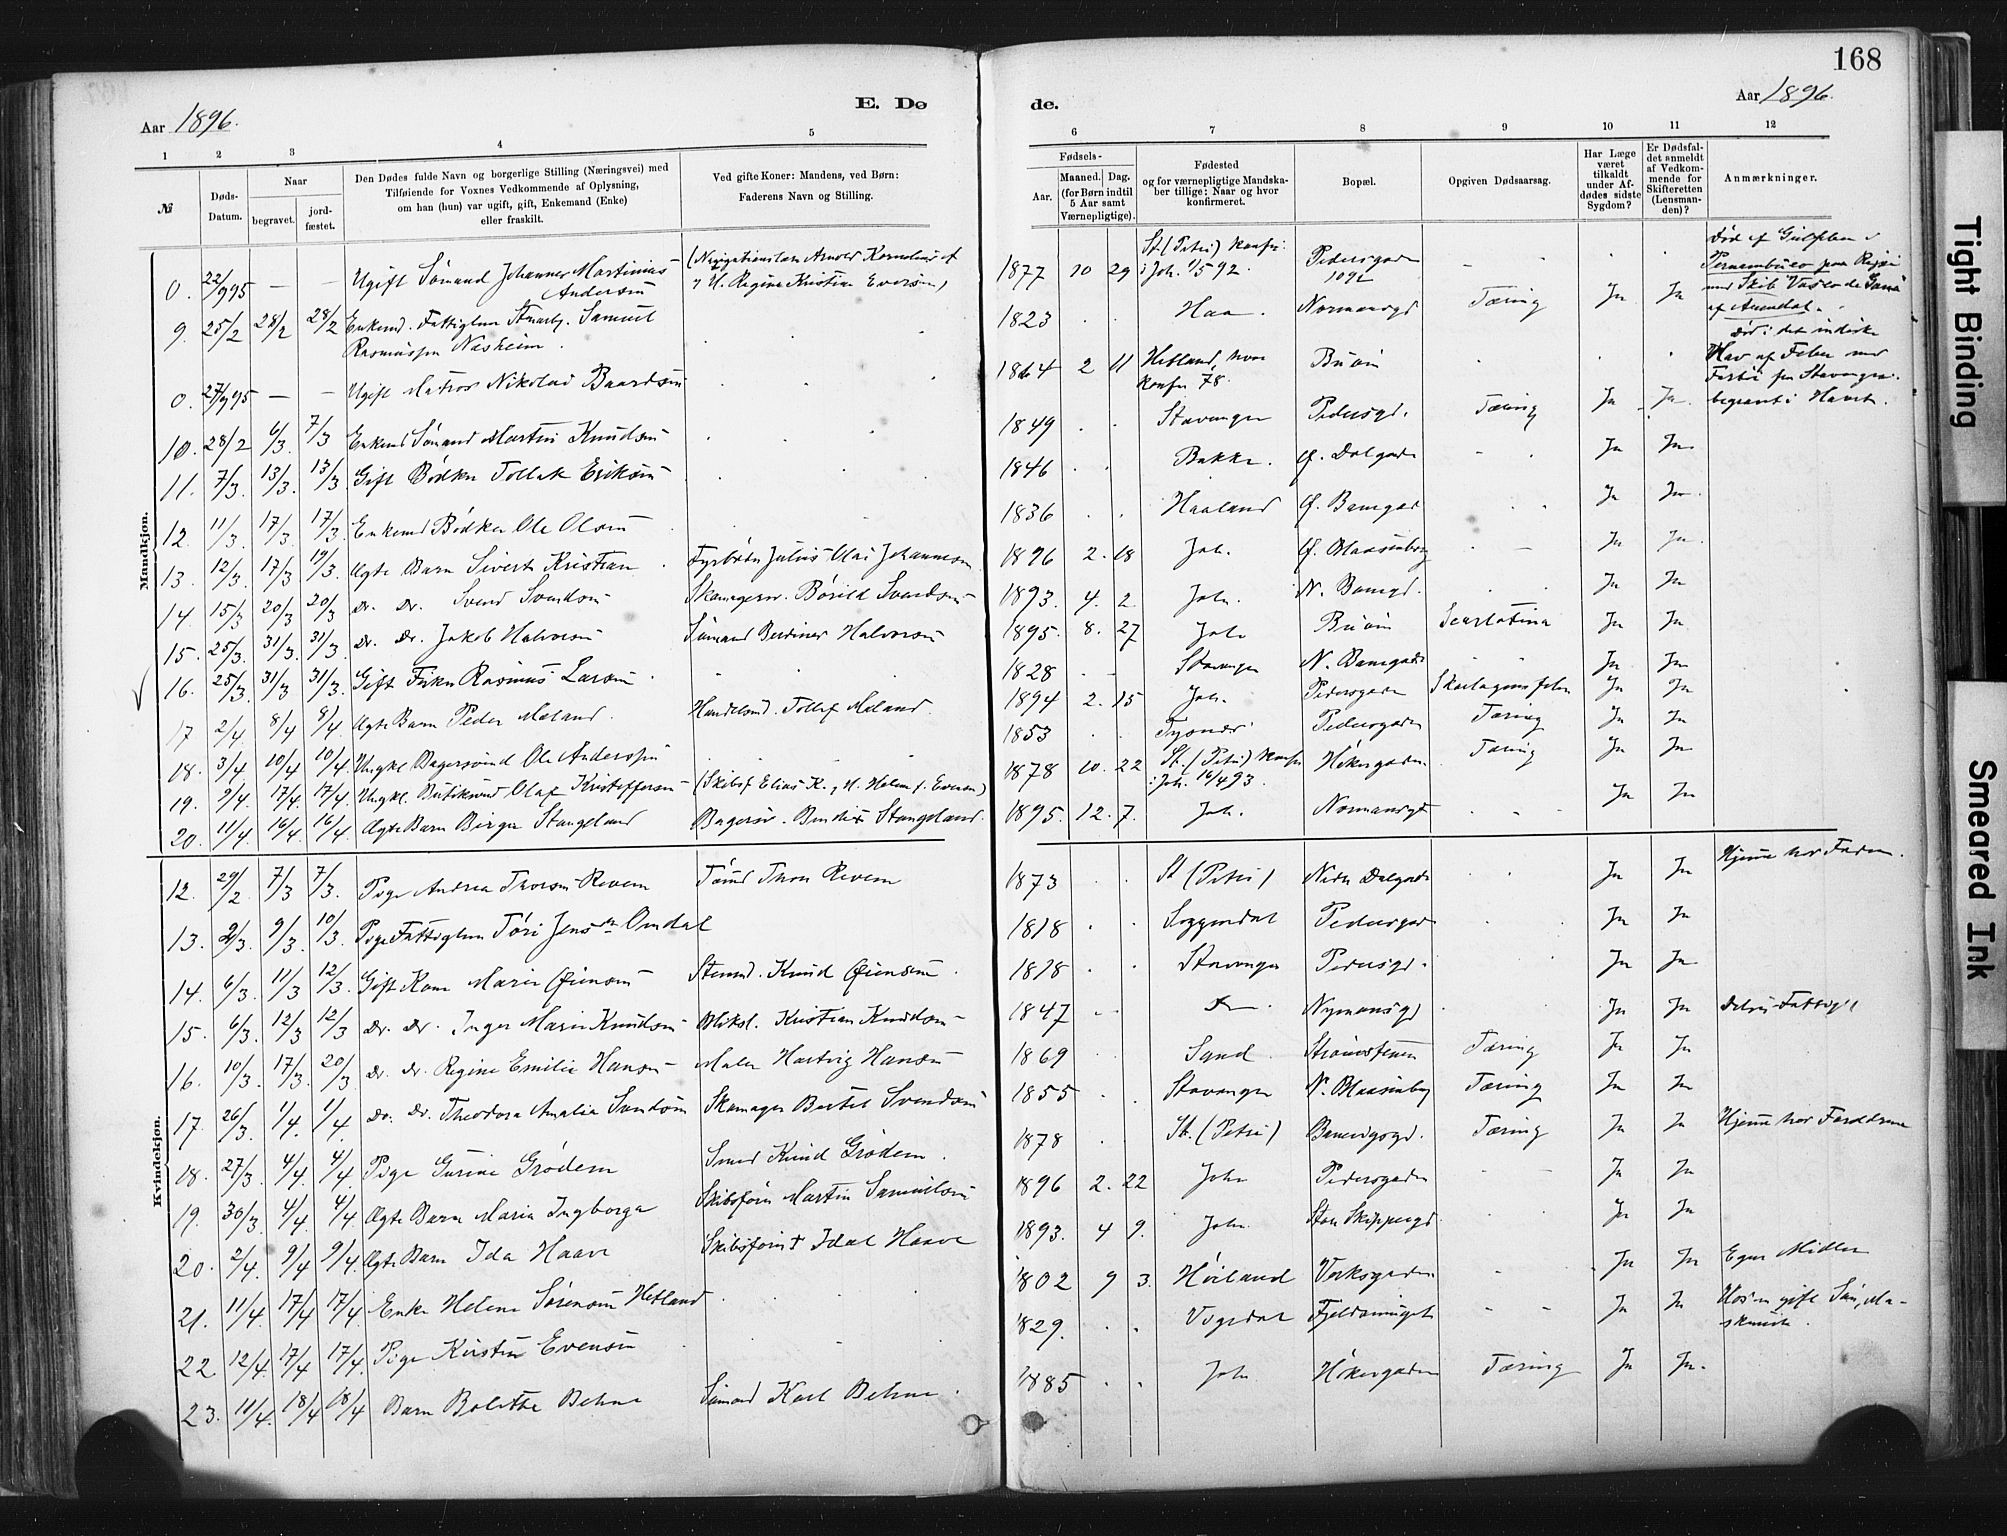 168
E. Dø
de.
Aar 1896.
Aar 1896.
1 2 3 4 5
6 7 8 9 10 11 12
№
Døds-Datum.
Naar
begravet.
jord-fæstet.
Den Dødes fulde Navn og borgerlige Stilling (Næringsvei) med
Tilføiende for Voxnes Vedkommende af Oplysning,
om han (hun) var ugift, gift, Enkemand (Enke)
eller fraskilt.
Ved gifte Koner: Mandens, ved Børn:
Faderens Navn og Stilling.
Fødsels-
Aar.
Maaned. Dag.
(for Børn indtil
5 Aar samt
Værnepligtige).
Fødested
og for værnepligtige Mandska-
ber tillige: Naar og hvor
konfirmeret.
Bopæl.
Opgiven Dødsaarsag.
Har Læge
været
tilkaldt
under Af-
dødes sidste
Sygdom?
Er Dødsfal-
det anmeldt
af Vedkom-
mende for
Skifteretten
(Lensman-
den)?
Anmærkninger.
Mandkjøn.
0. 22/9 95 — — Ugift Sømand Johannes Martinius Andersen
1877 10 29 St. (Petri) Konfir: i Joh. 1/5 92. Pedersgaden 109 - -
9. 25/2 28/2 28/2 Enkem. Samuel Rasmussen Næsheim.
1823 . . Haa. Normansgd Tæring Ja Ja
0. 27/9 95 — — Ugift Matros Nikolai Baardsen
1864 2 11 Hetland, hvor Konfir 78. Buøin
10. 28/2 6/3. 7/3 Enkem Sømand Martin Knudsen
1849 . . Stavanger Pedersgd. Tæring Ja Ja.
11. 7/3. 13/3. 13/3. Gift Bødker Tollak Eriksen
1846 . . Bakke. Ø. Dalgade - - Ja Ja
12. 11/3. 17/3. 17/3. Enkemd Bødker Ole Olsen
1836 . . Haaland Ø. Banegad . . Ja Ja.
13. 12/3. 17/3 19/3. Ægte Barn Sivert Kristian . Fyrbøder Julius Olai Johannesen
1896 2. 18 Joh. Ø. Blaasenborg . - Ja Ja.
14. 15/3 20/3 20/3 Do. Do. Svend Svendsen Skomagersv. Børild Svendsen
1893. 4. 2. Joh. N. Banegd. . . Ja Ja
15. 25/3. 31/3. 31/3. Do. Do. Jakob Halvorsen Sømand Berdines Halvorsen
1895. 8. 27 Joh. Buøin Scarlatina Ja Ja
16. 25/3. 31/3. 31/3. Gift Fisker Rasmus Larsen .
1828 . . Stavanger N. Banegade . . Ja Ja
17 2/4 8/4 9/4 Ægte Barn Peder Meland. Handelsmd. Tollef Meland.
1894 2. 15 Joh. Pedersgaden Skarlagensfeber Ja Ja
18. 3/4 10/4 10/4. Ungkl Bagersvend Ole Andersen
1853 . . Tysnes. Pedersgaden Tæring Ja Ja
19. 9/4. 17/4. 17/4. Ungkl. Olaf Kristoffersen (Skibsf Elias K., H. Helene f. Evensen)
1878 10. 22 St. (Petri) Konfir i Joh. 16/4 93. Høkergaden. Tæring Ja Ja
20. 11/4. 16/4. 16/4. Ægte Barn Birger Stangeland Bagersv. Bendix Stangeland.
1895. 12. 7. Joh. Normansgt . - Ja Ja
Død af Gulfeber i
Pernambuco paa Reise
med Skib Vasco de Gama
af Arendal.
Død i det indiske
Hav af Feber med
Fortuna fra Stavanger.
begravet i Havet.
Kvindekjøn.
12. 29/2 7/3 7/3. Pige Andrea Thorsen Revem Tømd Thore Revem
1873 . . St (Petri) Nedre Dalgade . . Ja Ja Hjemme hos Faderen.
13. 2/3. 9/3. 10/3. Pige Fattiglem Tøri Jensdr Omdal
1818 . . Soggendal Pedersgad . . Ja Ja
14. 6/3. 11/3 12/3. Gift Kone Maren Øiensen Stenmd. Knud Øiensen .
1818 . . Stavanger Pedersgd. . . Ja Ja
15. 6/3. 12/3 12/3 Do. Do. Inger Marie Knudsen Kristian Knudsen
1847 . . Do . Nymansgd . Ja Ja Delvis Fattigl
16. 10/3. 17/3. 20/3. Do. Do. Regine Emilie Hansen Maler Hartvig Hansen
1869 . . Sand Strømstenen Tæring Ja Ja
17. 26/3. 1/4. 1/4. Do. Do. Theodora Amalia Svendsen Skomager Bertel Svendsen
1855 . . Stavanger N. Blaasenborg Tæring Ja Ja
18. 27/3. 4/4. 4/4. Pige Gurine Grødem Smed Knud Grødem .
1878 . . St. (Petri) Banevigsgd. Tæring Ja Ja Hjemme hos Forældrene
19. 30/3. 4/4. 4/4. Ægte Barn Maria Ingborga Skibsfører Martin Samuelsen
1896 2. 22 Joh. Pedersgaden - - Ja Ja
20. 2/4. 9/4. 9/4. Ægte Barn Ida Haave Skibsfører Idal Haave
1893. 4 9. Joh. Store Skippergd. . . Ja Ja
21. 11/4. 17/4. 17/4. Enke Helene Sørensen Hetland .
1802 9 3. Høiland Verksgaden - . Ja Ja Egne Midler
22 12/4. 17/4 17/4. Pige Kirstine Evensen
1829. . . Fjeldsmuget - - Ja Ja Hos en gift Søn, Ma-
skinist.
23. 11/4. 18/4. 18/4 Barn Bolette Behne Sømand Karl Behne .
1885 . . Joh. Høkergaden Tæring Ja Ja.
Tight Binding
Smeared Ink